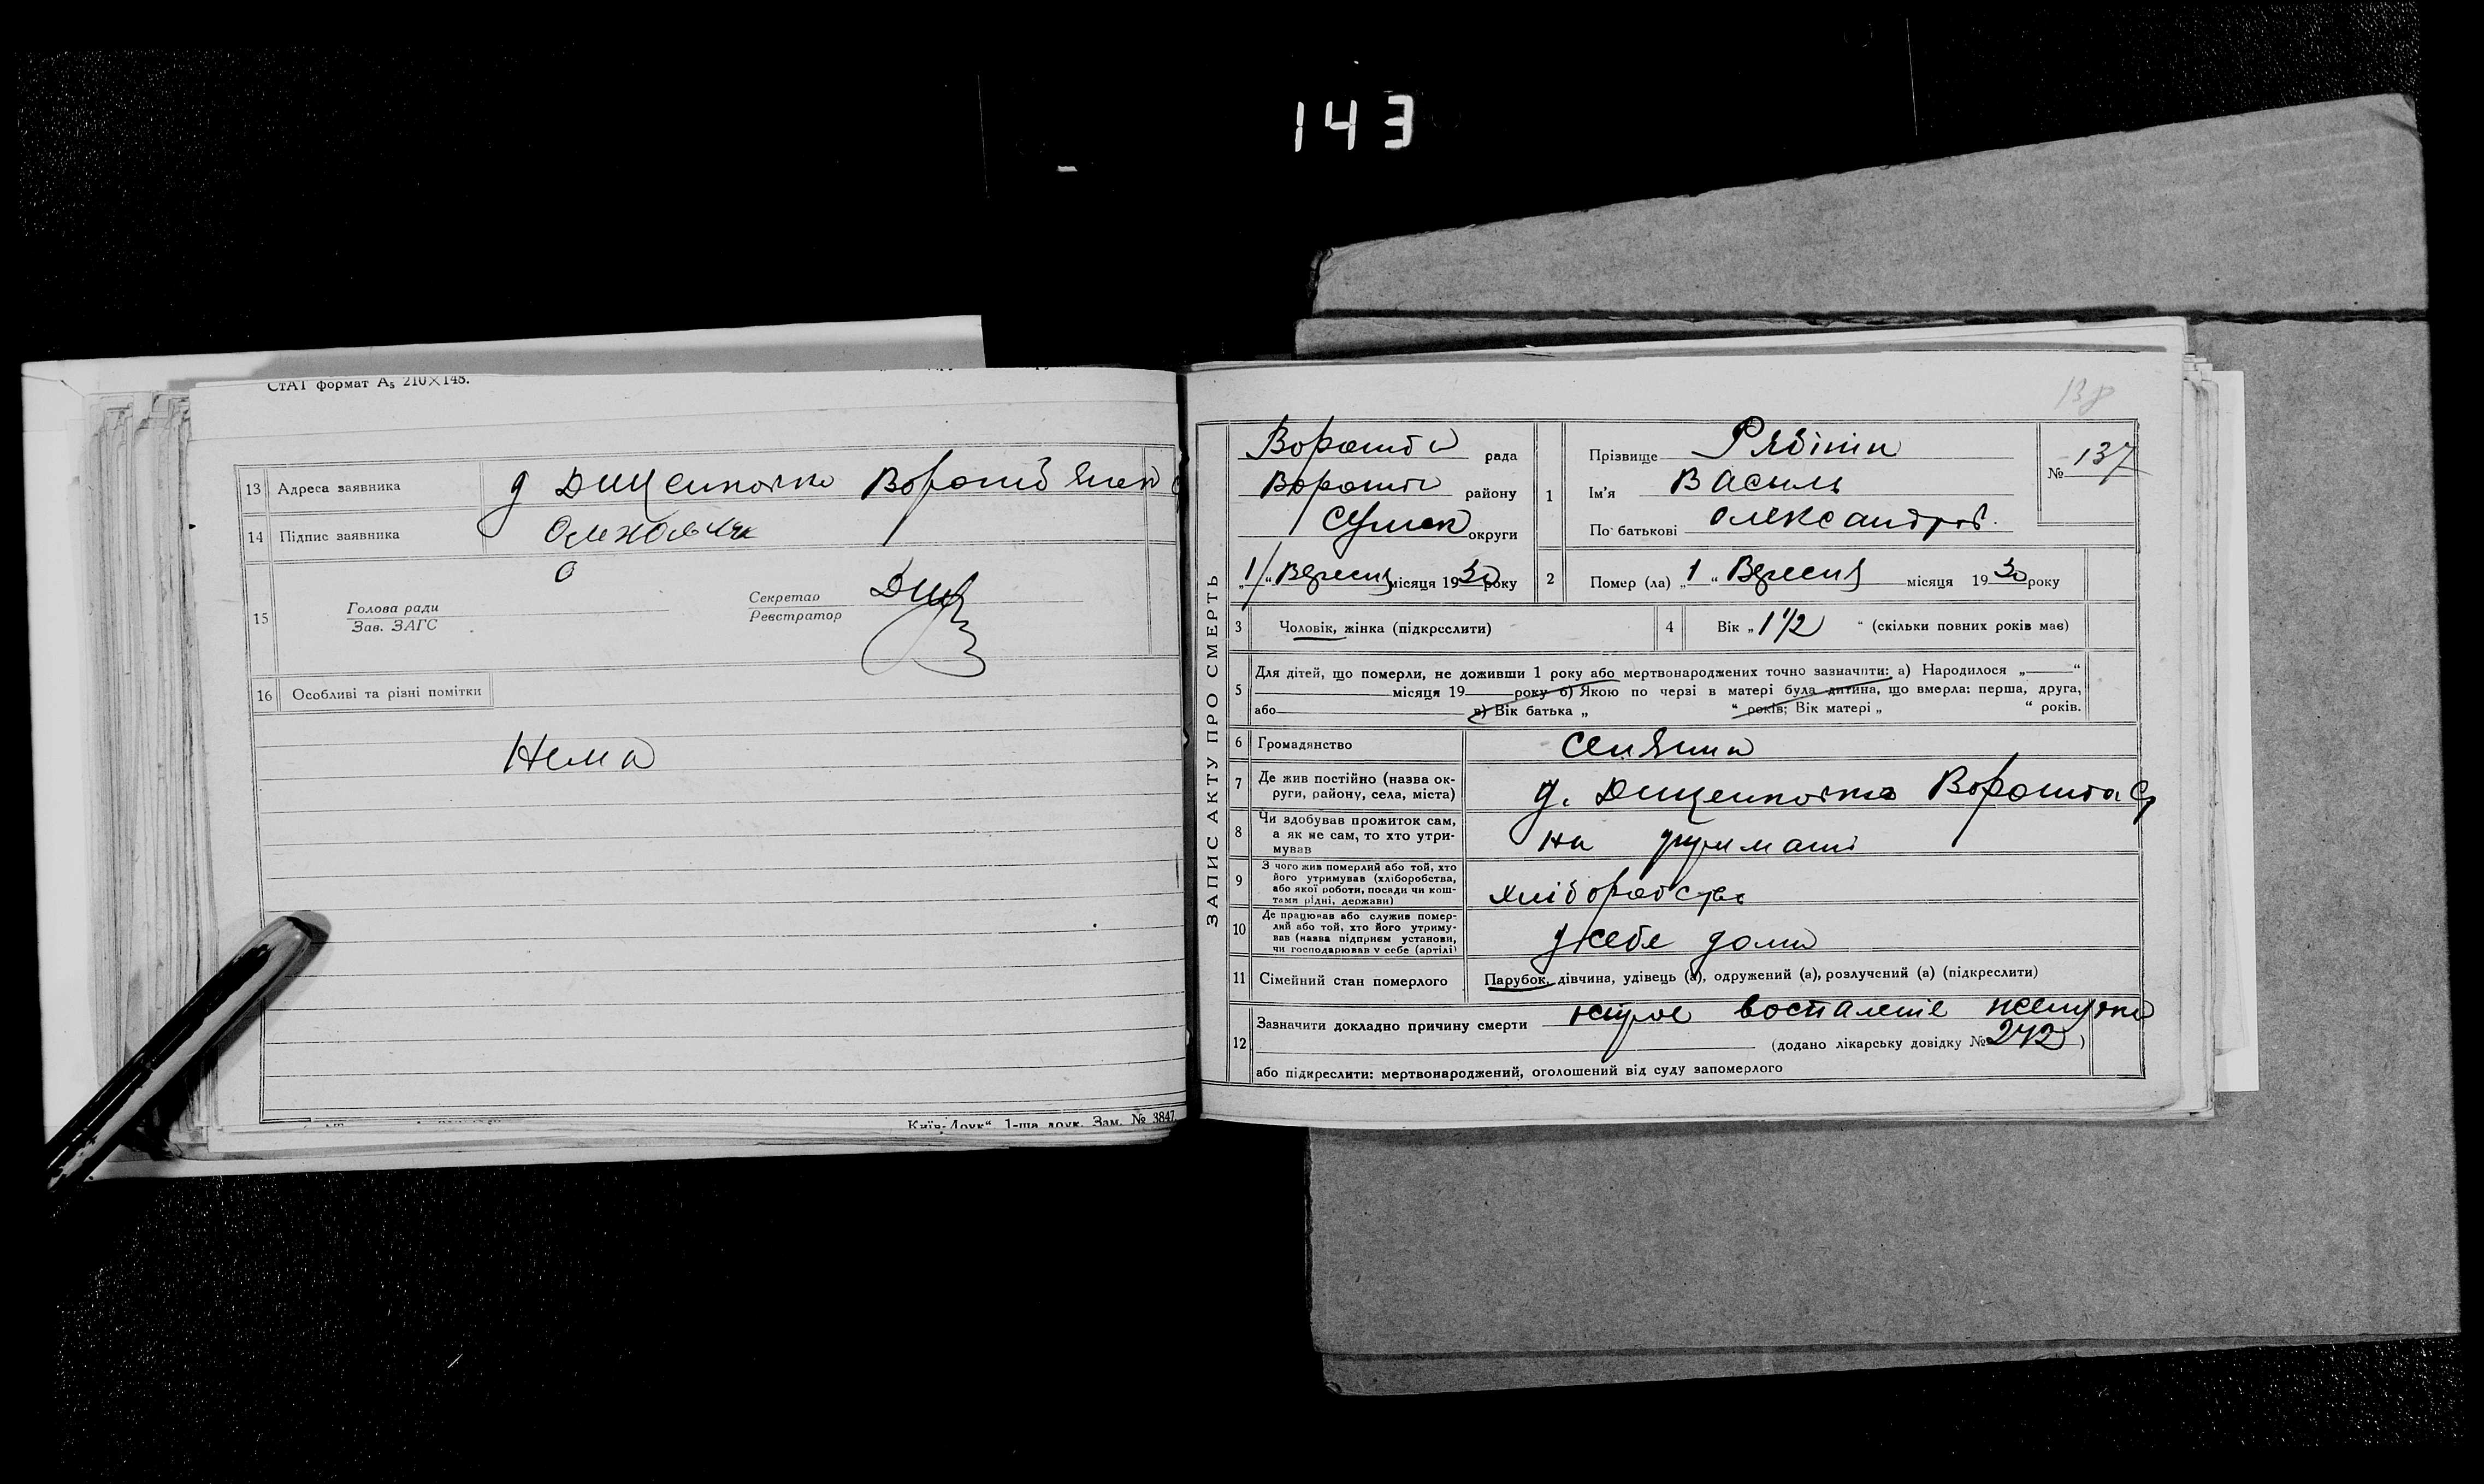 143
СтАТ формат А₅ 210×148.
13 Адреса заявника
14 Підпис заявника
15 Голова ради
Зав. ЗАГС
Секретар
Реєстратор
16 Особливі та різні помітки
Нема
Київ-Друк“ 1-ша друк. Зам. № 3847
138
ЗАПИС АКТУ ПРО СМЕРТЬ
Ворожба рада
Ворожб району
Сумск округи
„1“ Вересня місяця 1930 року
1 Прізвище Рябінін
Ім'я Василь
По батькові Олександров.
№ 137
2 Помер (ла) „1“ Вересня місяця 1930 року
3 Чоловік, жінка (підкреслити)
4 Вік „1 1/2“ (скільки повних років має)
5 Для дітей, що померли, не доживши 1 року або мертвонароджених точно зазначити: а) Народилося „ “
місяця 19 року б) Якою по черзі в матері була дитина, що вмерла: перша, друга,
або в) Вік батька „ “ років; Вік матері „ “ років.
6 Громадянство Селянин
7 Де жив постійно (назва ок-
руги, району, села, міста)
8 Чи здобував прожиток сам,
а як не сам, то хто утри-
мував
на утримані
9 З чого жив померлий або той, хто
його утримував (хліборобства,
або якої роботи, посади чи кош-
тами рідні, держави)
хліборобства
10 Де працював або служив помер-
лий або той, хто його утриму-
вав (назва підприєм установи,
чи господарював у себе (артілі)
у себе дома
11 Сімейний стан померлого Парубок, дівчина, удівець (а), одружений (а), розлучений (а) (підкреслити)
12 Зазначити докладно причину смерти острое воспаление желудка
(додано лікарську довідку № 242)
або підкреслити: мертвонароджений, оголошений від суду запомерлого